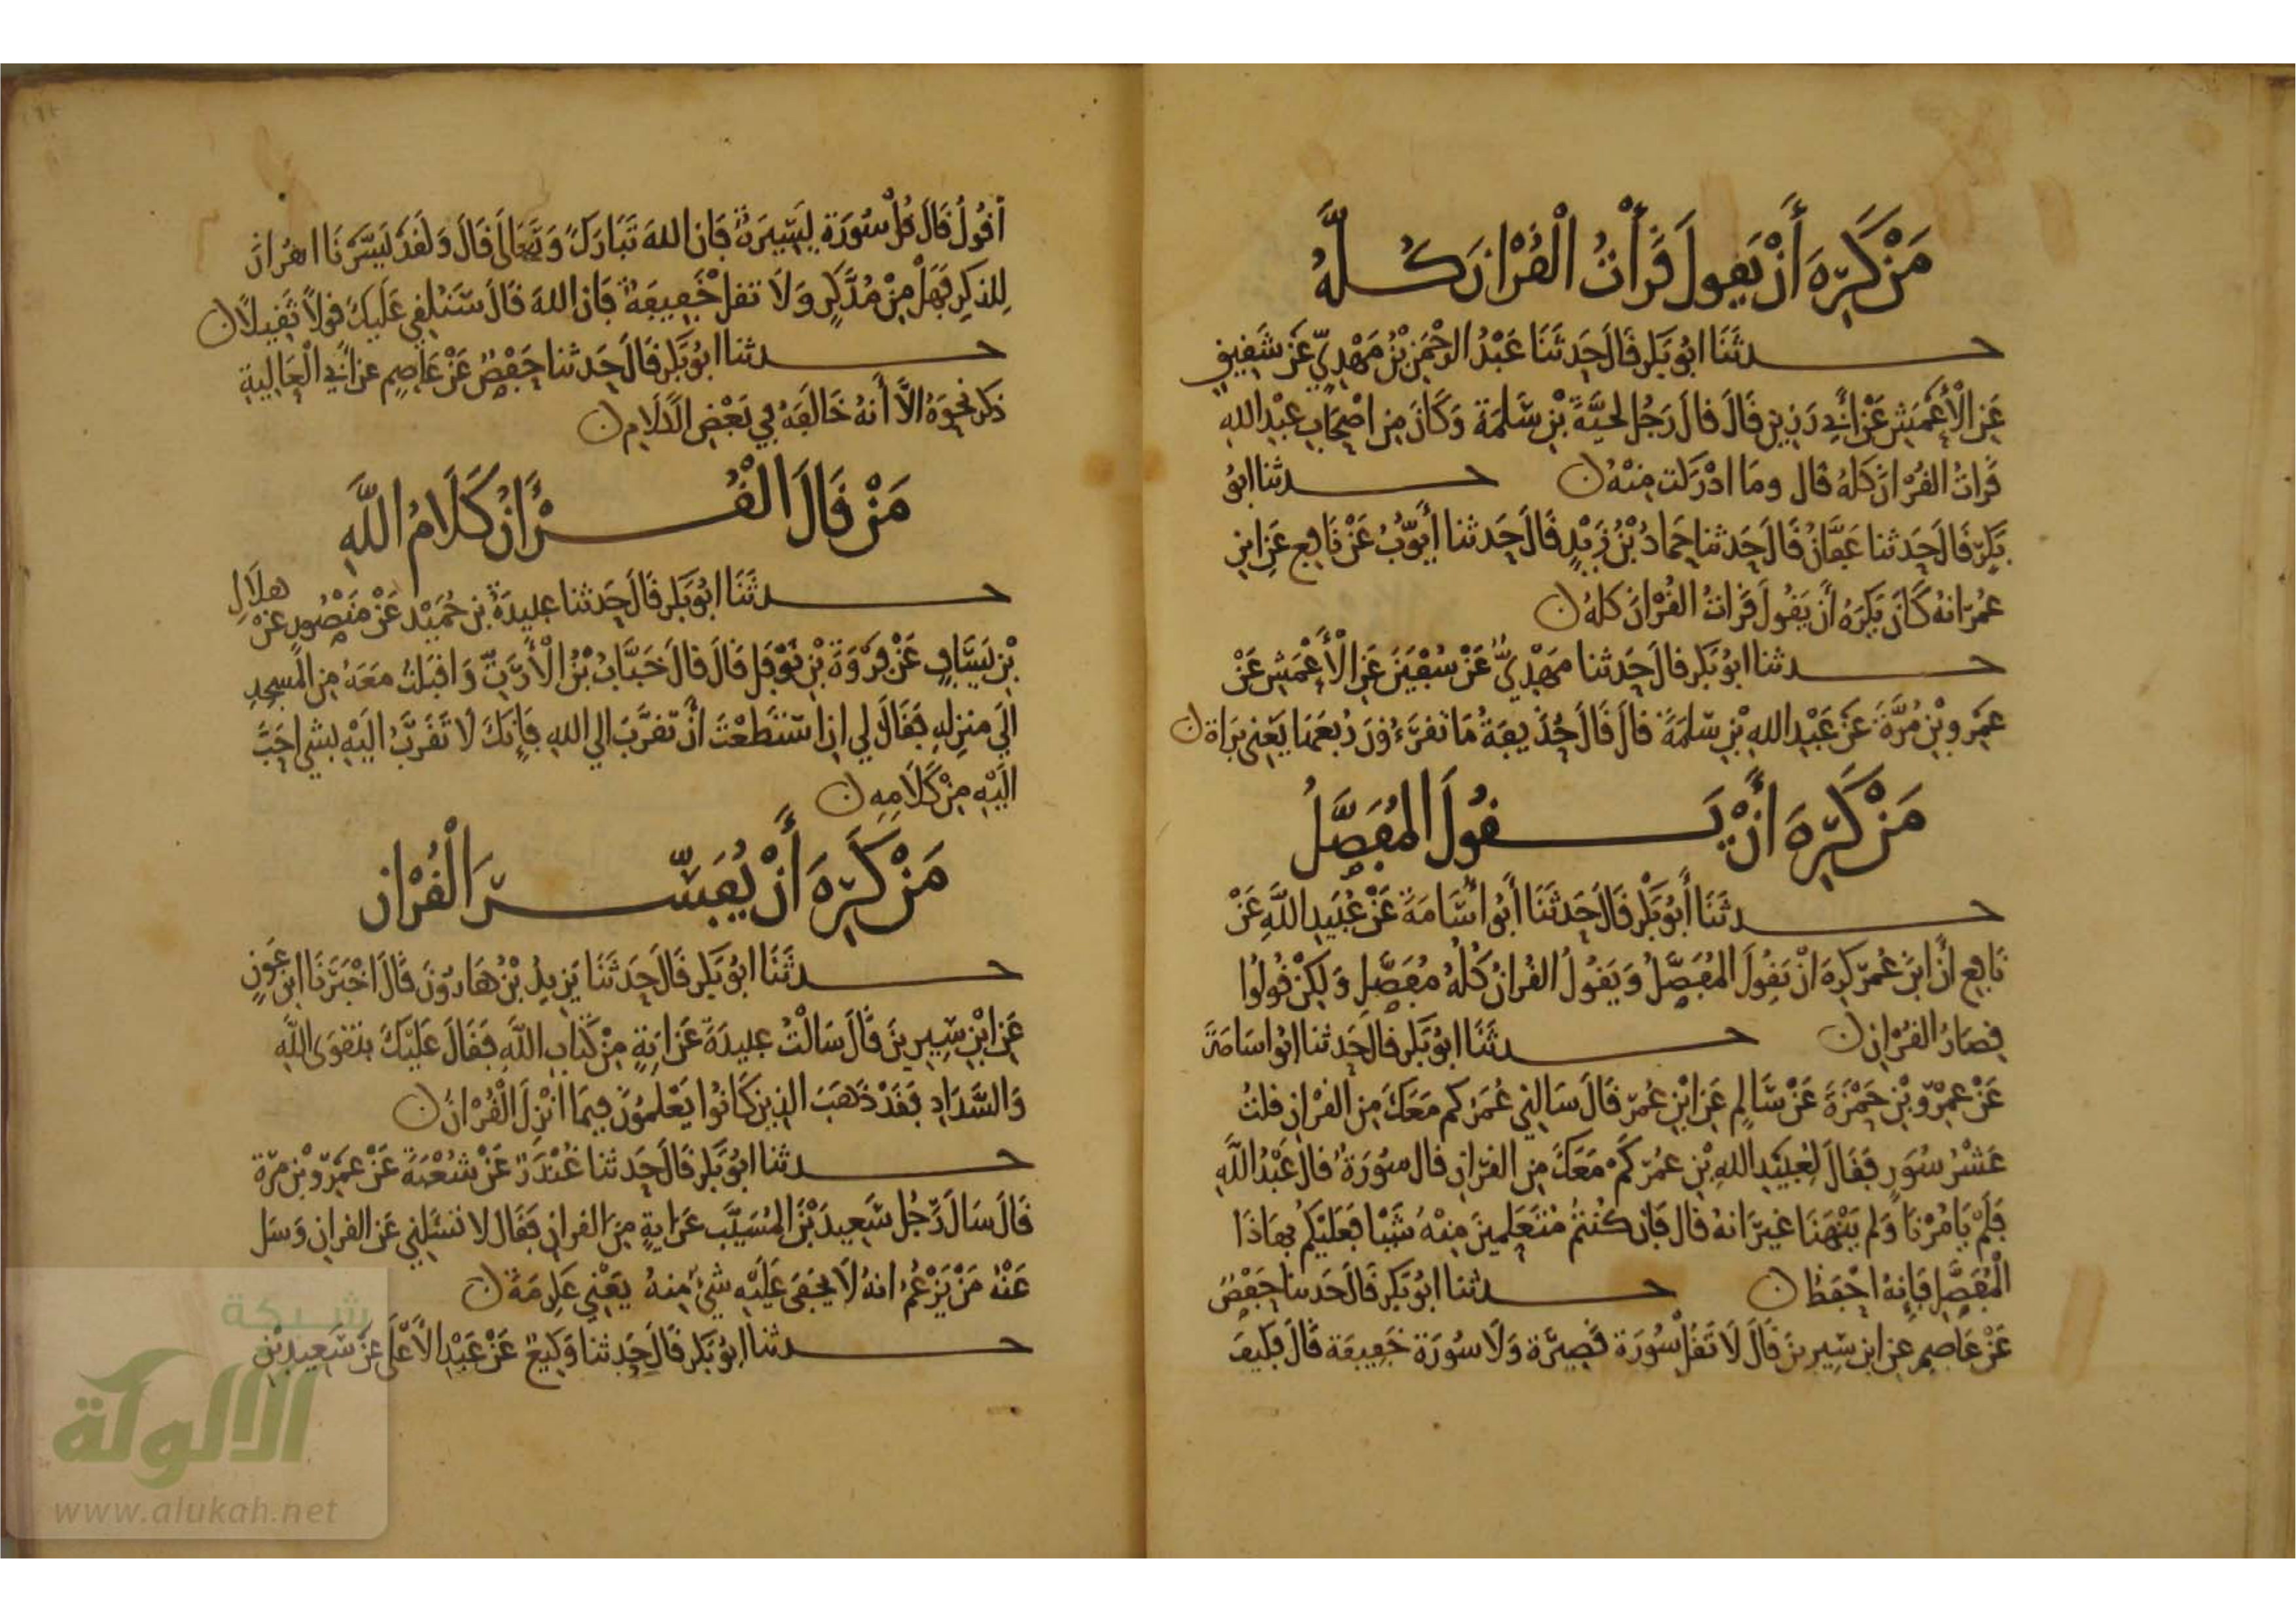 مَنْ كَرِهَ أَنْ يَقُولَ قَرَأْتُ الْقُرْانَ كُلَّهُ
حدثَنَا ابُو بَكر قَالَ حَدثَنَا عَبْدُ الرحْمَنِ بْنُ مَهْدِيّ عَن شَقِيقٍ
عَنِ الْأَعْمَشِ عَنْ أَبِي رَزِينٍ قَالَ قَالَ رَجُل لحبَّةَ بْنِ سَلمَةَ وَكَانَ مِن اصْحَابِ عبْدِ اللهِ
قَرَاتُ القُرْانَ كلهُ قال وما ادْرَكت مِنْهُ ن حدثنا ابُو
بَكرٍ قَالَ حَدثنا عَفَّانُ قَالَ حَدثنا حَمادُ بْنُ زَيْدٍ قَالَ حَدثنا أَيُّوبُ عَنْ نَافِعٍ عَنِ ابنِ
عُمَرَ انهُ كَانَ يَكرَهُ أَنْ يَقُولَ قَرَاتُ القُرْانَ كلهُ ن
حدثنا ابُو بَكر قالَ حَدثنا مَهْدِيٌّ عَنْ سُفْيَنَ عَنِ الْأَعْمَشِ عَنْ
عَمرِو بْنِ مُرَّةَ عَنْ عَبْدِ اللهِ بْنِ سَلمَةَ قالَ قَالَ حُذَيفَةُ مَا تَقرَءُونَ رُبعَهَا يَعْنِي بَرَاة ن
مَنْ كَرِهَ أَنْ يَقُولَ المُفَصَّلُ
حدثَنَا أَبُو بَكْر قَالَ حَدثَنَا أَبُو أُسَامَةَ عَنْ عُبَيدِ اللَّهِ عَنْ
نَافِعٍ أنَّ ابنَ عُمَرَ كرِهَ انْ يَقُولَ المُفَصَّلُ وَيَقُولُ القُرانُ كُلُهُ مُفَصَّل وَلكِنْ قُولُوا
قِصَارُ القُرْانِ ن حدثَنَا ابُو بَكر قالَ حَدثنا ابُو اسَامَةَ
عَنْ عمرَ بْنِ حَمْزَةَ عَنْ سَالِمٍ عَنِ ابْنِ عُمَرَ قَالَ سَالنِي عُمَرُ كم مَعَكَ مِنَ القرْانِ قلتُ
عَشْرُ سُوَرٍ فَقَالَ لعُبَيْدِ اللهِ بْنِ عُمَرَ كَمْ مَعَكَ مِن القرْانِ قال سُورَةٌ قالَ عَبْدُ اللَّهِ
فَلَمْ يَامُرْنَا وَلم يَنْهَنَا غيرَ انهُ قال فَان كُنتُمْ مُتَعَلِّمِينَ مِنْهُ شَيْئا فَعَلَيْكُم بهَاذَا
الْمُفَصَّلِ فَإِنهُ احْفَظُ ن حدثنا ابُو بَكر قَالَ حَدثنا حَفْصٌ
عَنْ عَاصِمٍ عنِ ابن سِيرِينَ قَالَ لَا تَقُلْ سُورَة قَصِيرَة وَلَا سُورَة خَفِيفَة قَالَ فَكيفَ
أقُولُ قَالَ قُلْ سُورَة يَسِيرَةٌ فَان اللهَ تَبَارَكَ وَتَعَالَى قَالَ وَلَقَد يَسَّرْنَا القُرانَ
لِلذكرِ فَهَلْ مِنْ مُدَّكِرٍ وَلَا تقل خَفِيفَةٌ فَان اللهَ قَالَ سَنُلقِي عَلَيكَ قولاً ثَقِيلاً ن
حدثنا ابُو بَكر قَالَ حَدثنا حَفْصٌ عَنْ عَاصِمٍ عن أَبي الْعَالِيةِ
ذكرَ نحْوَهُ الَّا أَنهُ خَالَفَهُ فِي بَعْضِ الكَلَامِ ن
مَنْ قَالَ الْقُرْأَنُ كَلَامُ اللَّهِ
حدثَنَا ابُو بَكر قَالَ حَدثنا عبيدَةُ بن حُمَيْد عَنْ مَنْصُورٍ عَنْ هلَالِ
بْنِ يَسَافٍ عَنْ فَرْوَةَ بْنِ نَوْفَلٍ قَالَ قالَ خَبَّابُ بْنُ الْأَرَتِّ وَاقبَلتُ مَعَهُ مِن المَسجِدِ
الَى منزِلِهِ فَقَالَ لِي انِ استَطَعْتَ أَنْ تَقَرَّبَ الي اللهِ فَإِنكَ لَا تَقَرَّبُ الَيْهِ بشي احَبَّ
الَيْهِ مِنْ كَلَامِهِ ن
مَنْ كَرِهَ أَنْ يُفَسِّرَ الْقُرْانَ
حدثَنَا ابُو بَكر قَالَ حَدثَنَا يَزِيدُ بْنُ هَارُونَ قَالَ اخْبَرَنَا ابن عَونٍ
عَنِ ابْنِ سِيرِينَ قَالَ سَالْتُ عبِيدَةَ عَن ايَةٍ مِنْ كتَابِ اللَّهِ فَقَالَ عَلَيْكَ بتَقوَى اللَّهِ
وَالسَّدَادِ فَقَدْ ذهَبَ الذِينَ كَانُوا يَعْلَمُونَ فِيمَا انْزِلَ الْقُرْانُ ن
حدثنا ابُو بَكر قَالَ حَدثنا غُنْدَرٌ عَنْ شُعْبَةَ عَنْ عَمرِو بْنِ مرَّة
قَالَ سَالَ رَجُل سَعِيدَ بْنَ المُسَيَّبِ عَن ايةٍ مِنَ القرانِ فَقَالَ لا تَسْئَلنِي عَنِ القرانِ وَسَل
عَنْهُ مَنْ يَزْعُمُ انهُ لَا يَخْفَى عَلَيْهِ شيْءٌ مِنهُ يَعْنِي عكرِمَةَ ن
حدثنا ابُو بَكر قَالَ حَدثنا وَكِيعٌ عَنْ عَبْدِ الْأَعْلَى عَنْ سَعِيدِ بْنِ
شبكة
الألوكة
www.alukah.net